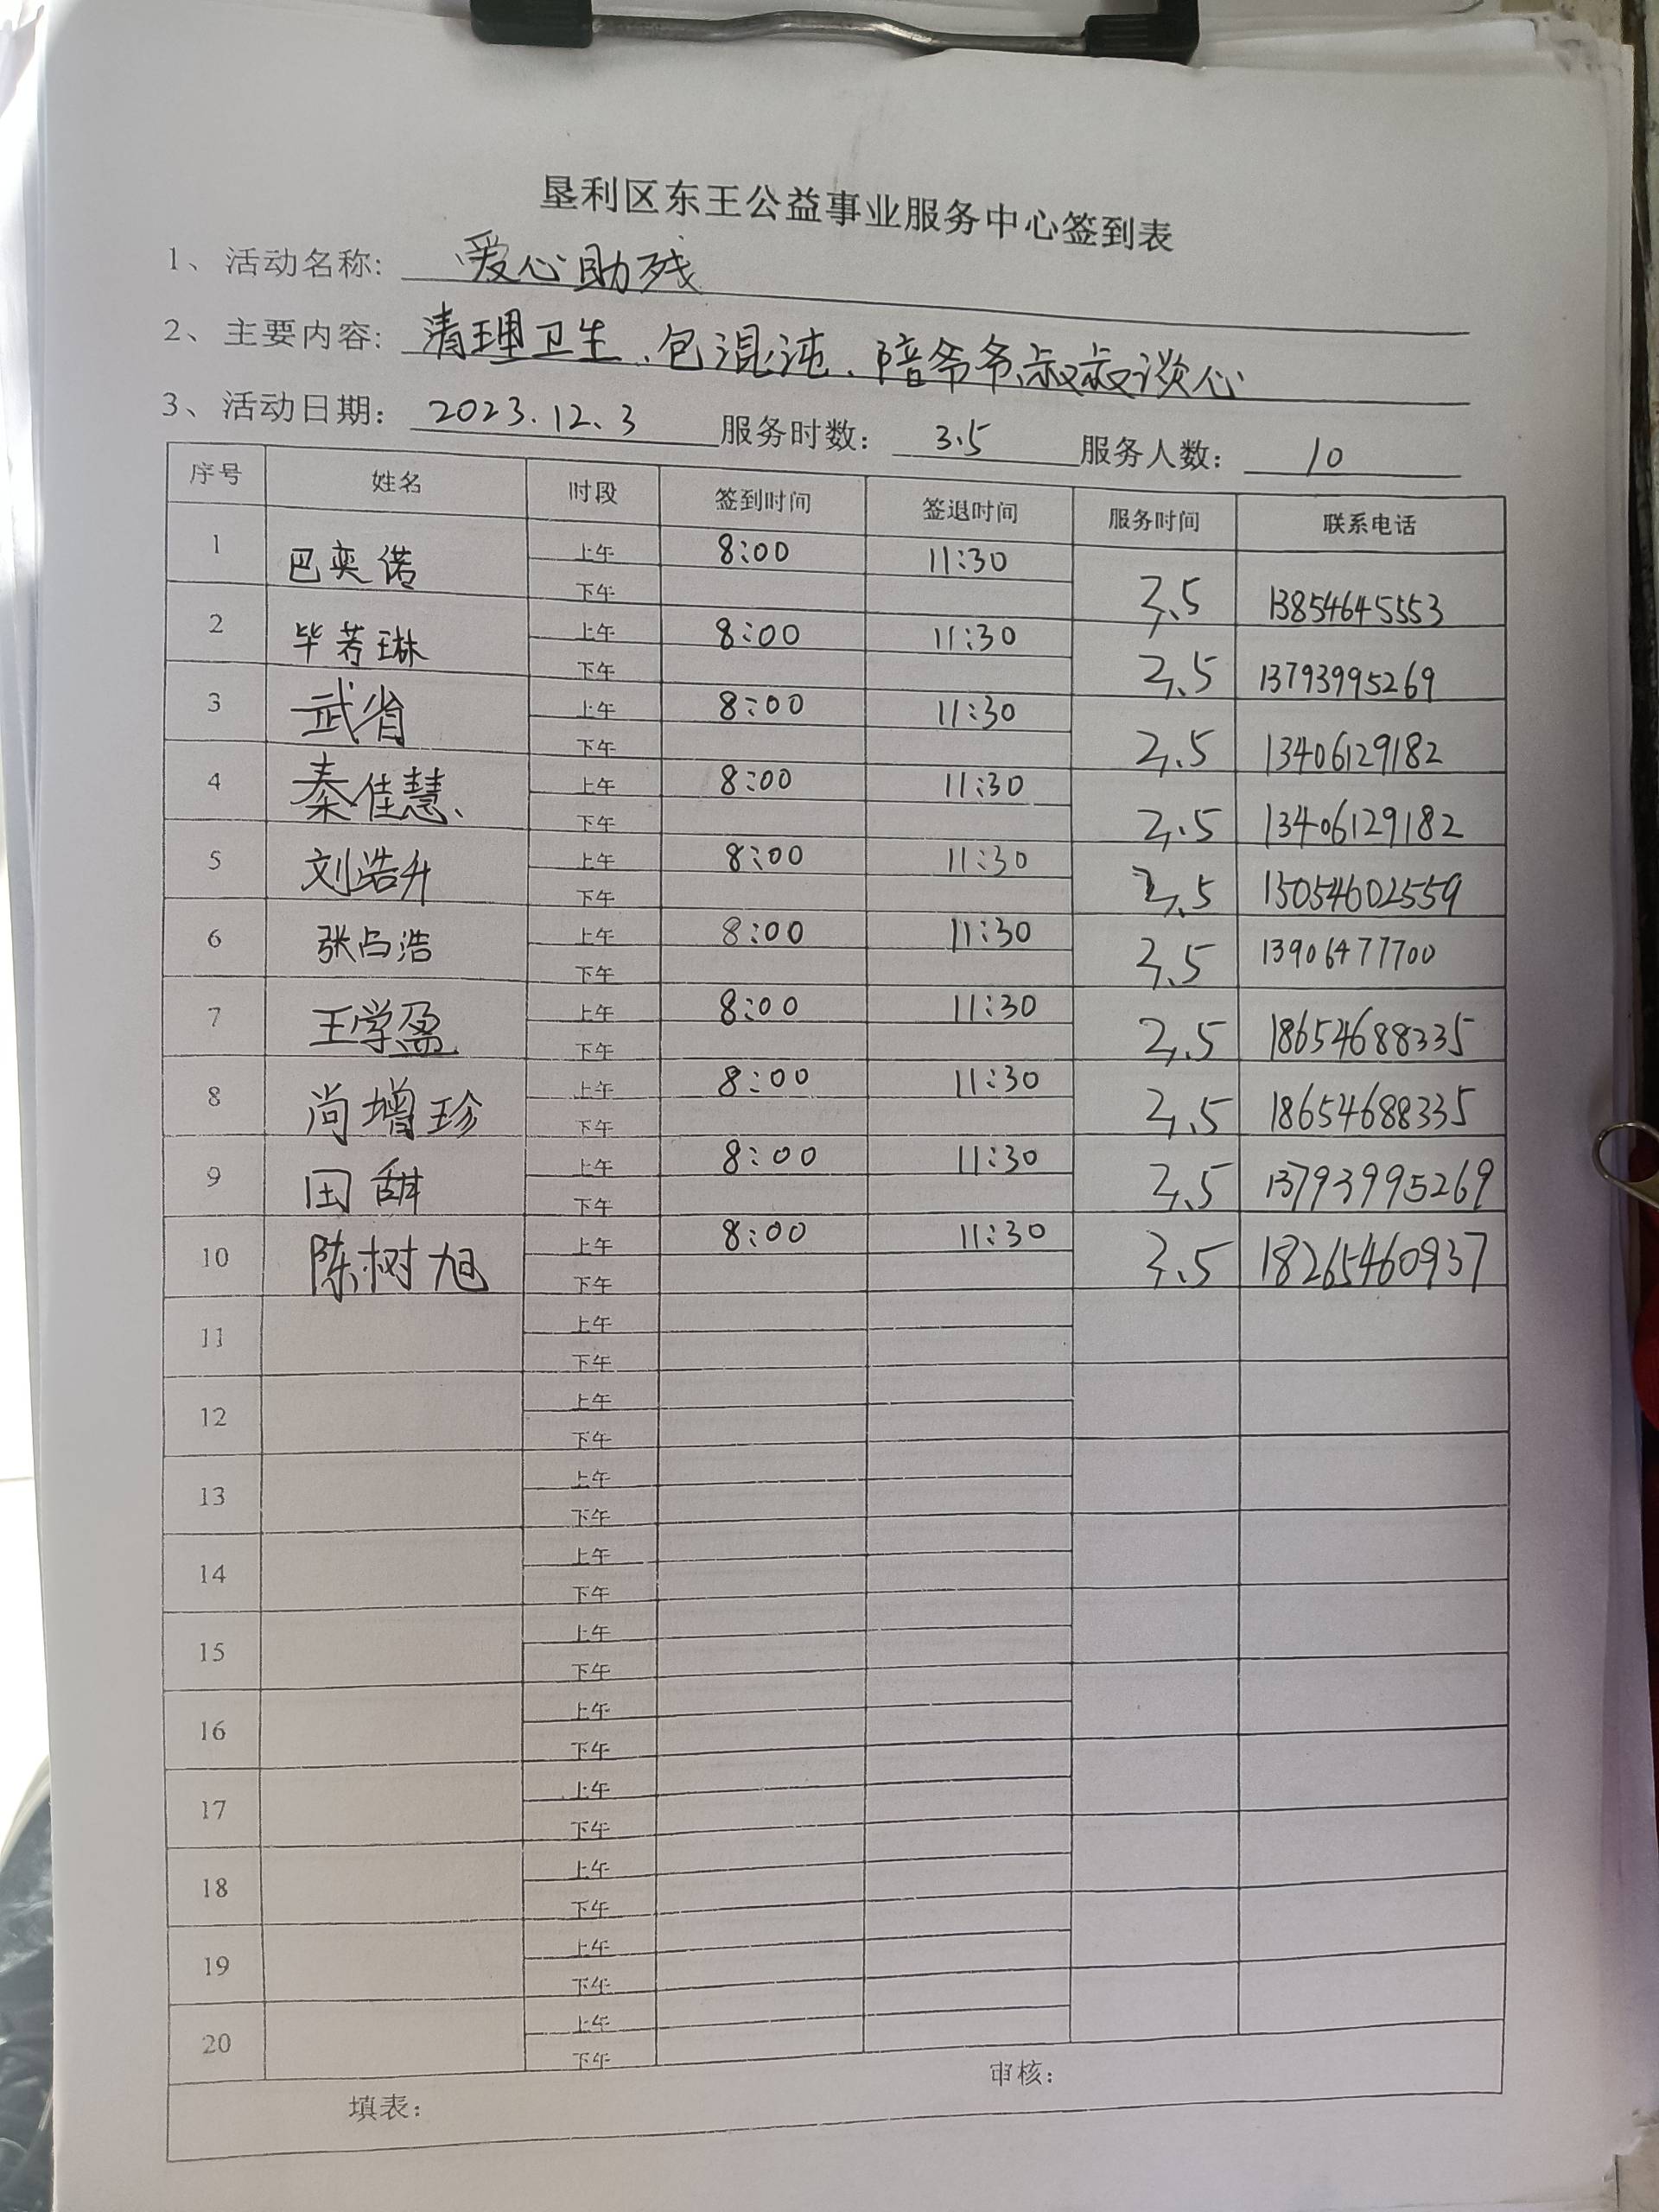 垦利区东王公益事业服务中心签到表
1、活动名称: 爱心助残
2、主要内容: 清理卫生、包混沌、陪爷爷、叔叔谈心
3、活动日期: 2023.12.3 服务时数: 3.5 服务人数: 10
序号 姓名 时段 签到时间 签退时间 服务时间 联系电话
1 巴奕诺 上午 8:00 11:30 3.5 13854645553
下午
2 毕芳琳 上午 8:00 11:30 3.5 13793995269
下午
3 武省 上午 8:00 11:30 3.5 13406129182
下午
4 秦佳慧 上午 8:00 11:30 3.5 13406129182
下午
5 刘浩升 上午 8:00 11:30 3.5 15054602559
下午
6 张占浩 上午 8:00 11:30 3.5 13906477700
下午
7 王学盈 上午 8:00 11:30 3.5 18654688335
下午
8 尚增珍 上午 8:00 11:30 3.5 18654688335
下午
9 田甜 上午 8:00 11:30 3.5 13793995269
下午
10 陈树旭 上午 8:00 11:30 3.5 18265460937
下午
11 上午
下午
12 上午
下午
13 上午
下午
14 上午
下午
15 上午
下午
16 上午
下午
17 上午
下午
18 上午
下午
19 上午
下午
20 上午
下午
填表: 审核: